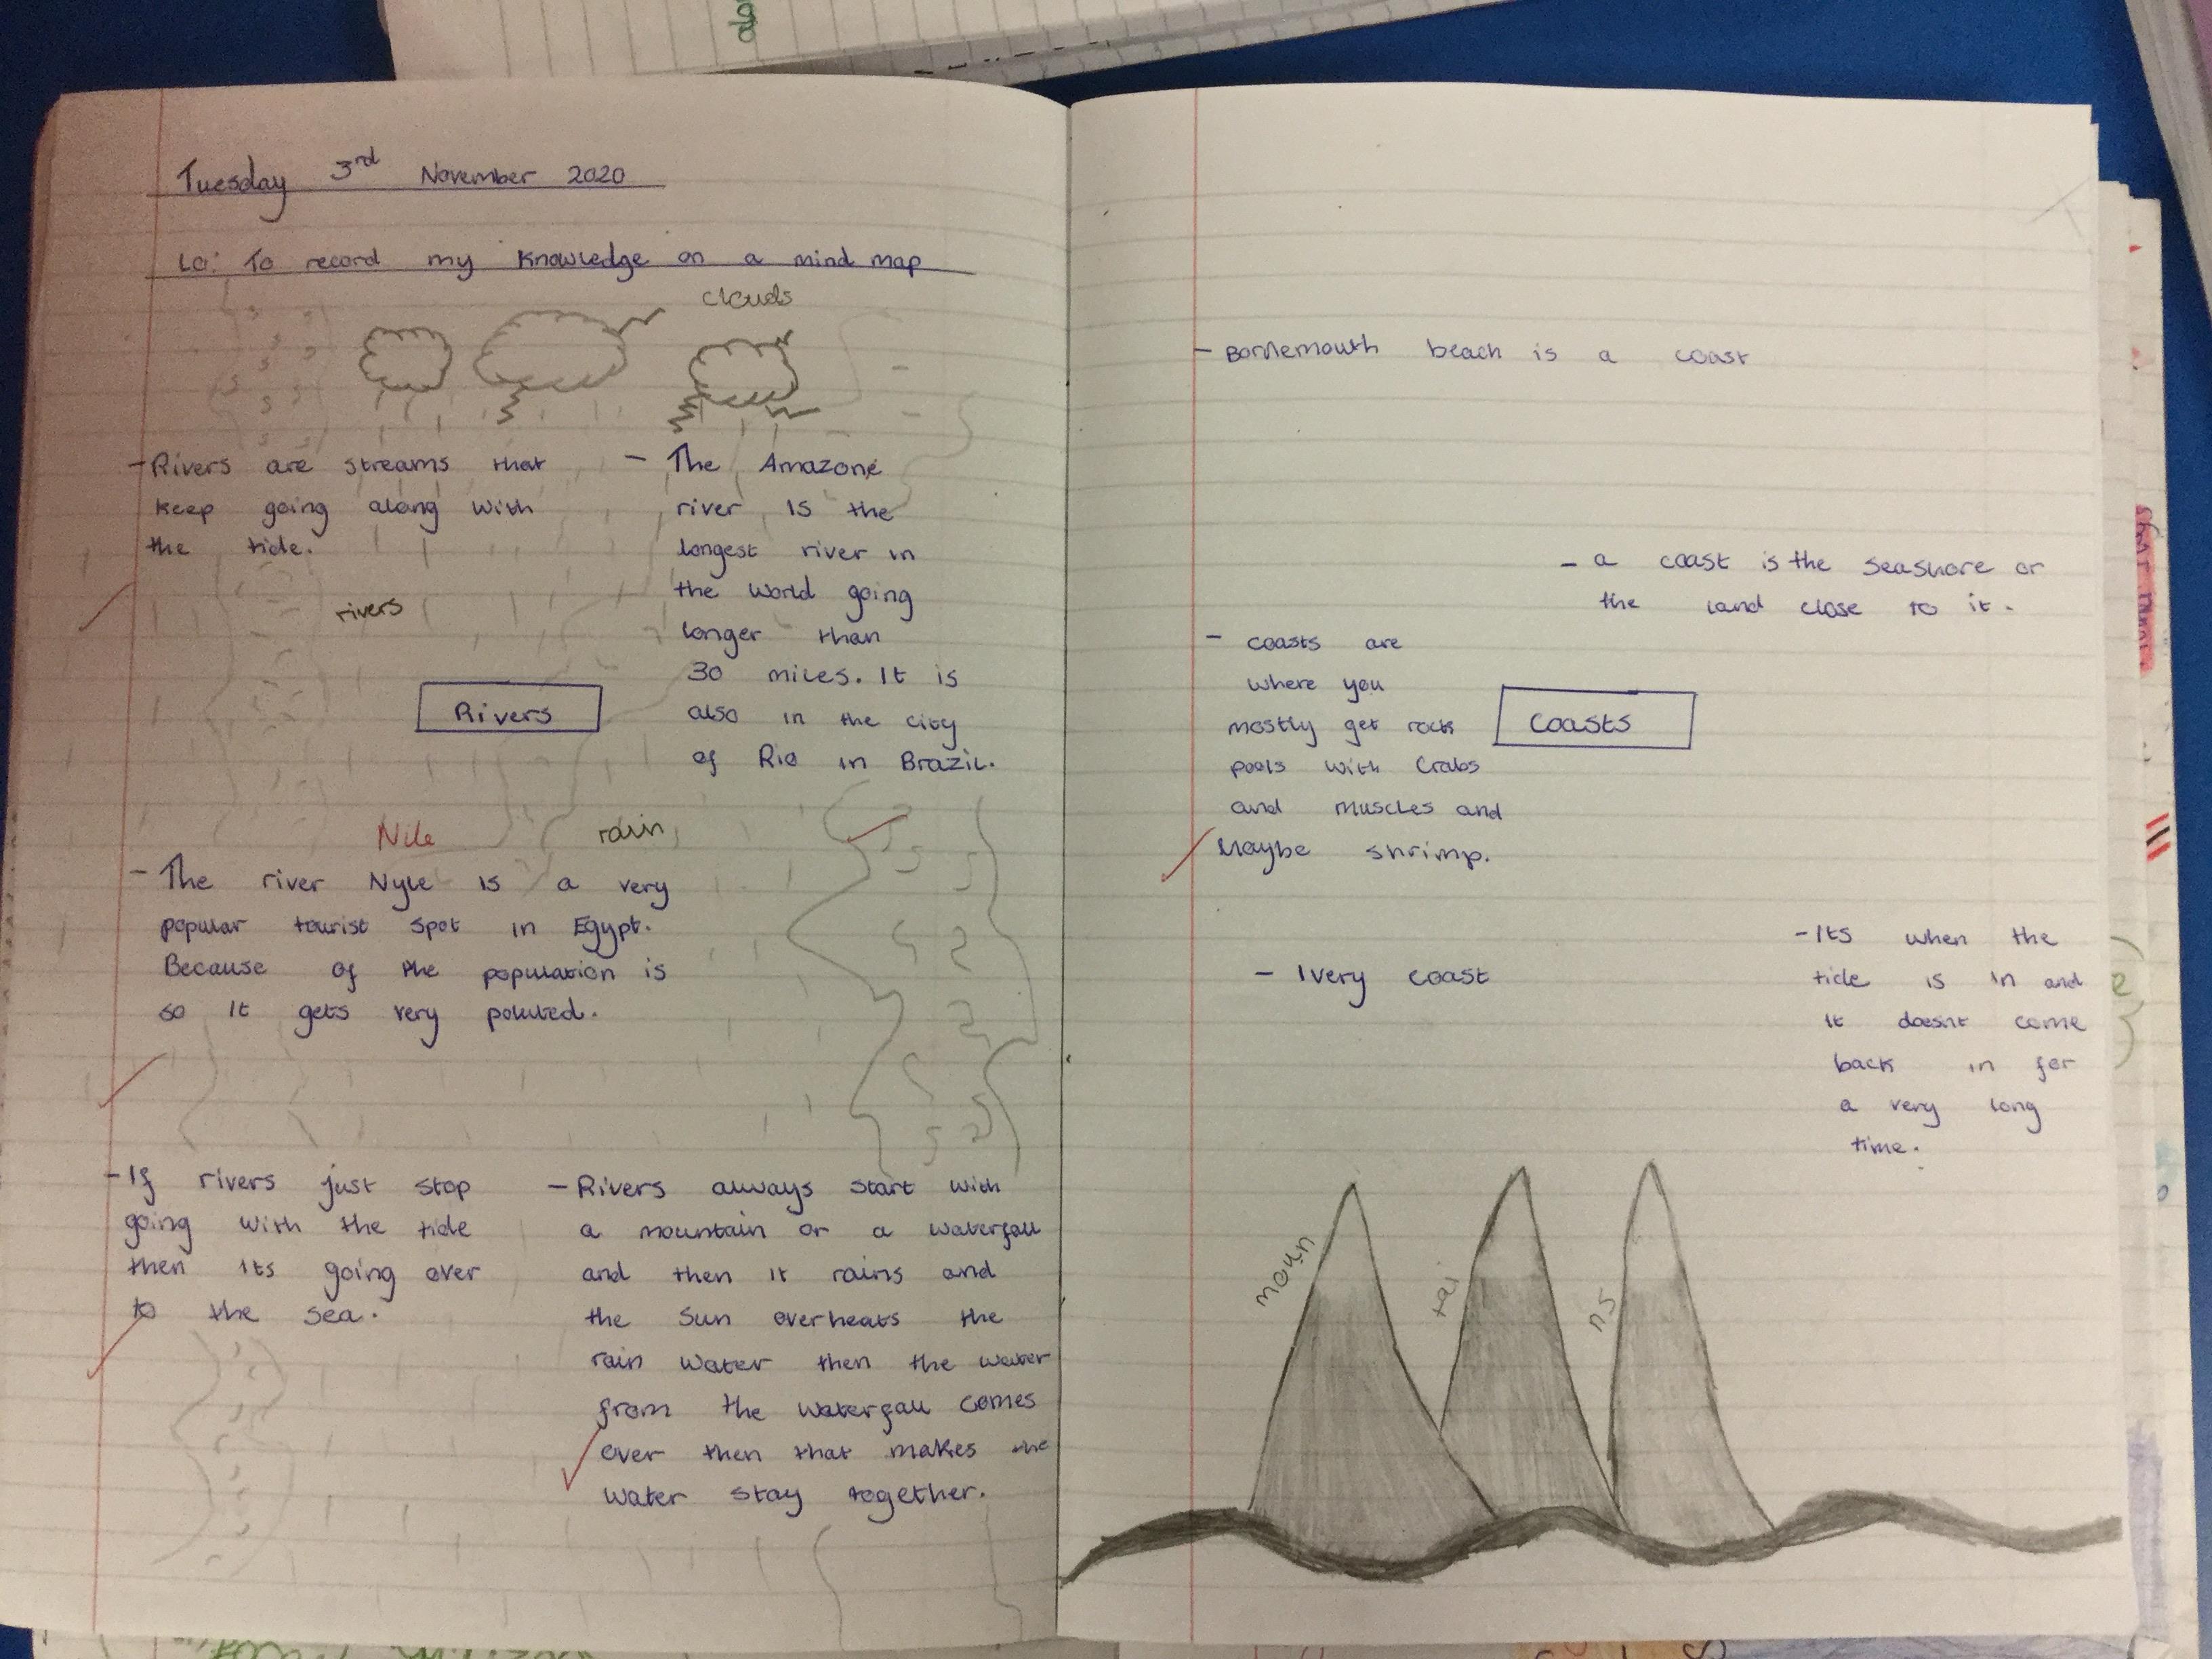 Tuesday 3rd November 2020
LO: To record my knowledge on a mind map
clouds
- Rivers are streams that
keep going along with
the tide.
rivers
- The Amazone
river is the
longest river in
the world going
longer than
30 miles. It is
also in the city
of Rio in Brazil.
Rivers
Nile
rain
- The river Nyle is a very
popular tourist spot in Egypt.
Because of the population is
so it gets very poluted.
- If rivers just stop
going with the tide
then its going over
to the sea.
- Rivers always start with
a mountain or a waterfall
and then it rains and
the sun overheats the
rain water then the water
from the waterfall comes
over then that makes the
water stay together.
- Bornemouth beach is a coast
- a coast is the seashore or
the land close to it.
- coasts are
where you
mostly get rock
pools with crabs
and muscles and
Maybe shrimp.
Coasts
- Ivery coast
- Its when the
tide is in and
it doesnt come
back in for
a very long
time.
moun
tai
ns